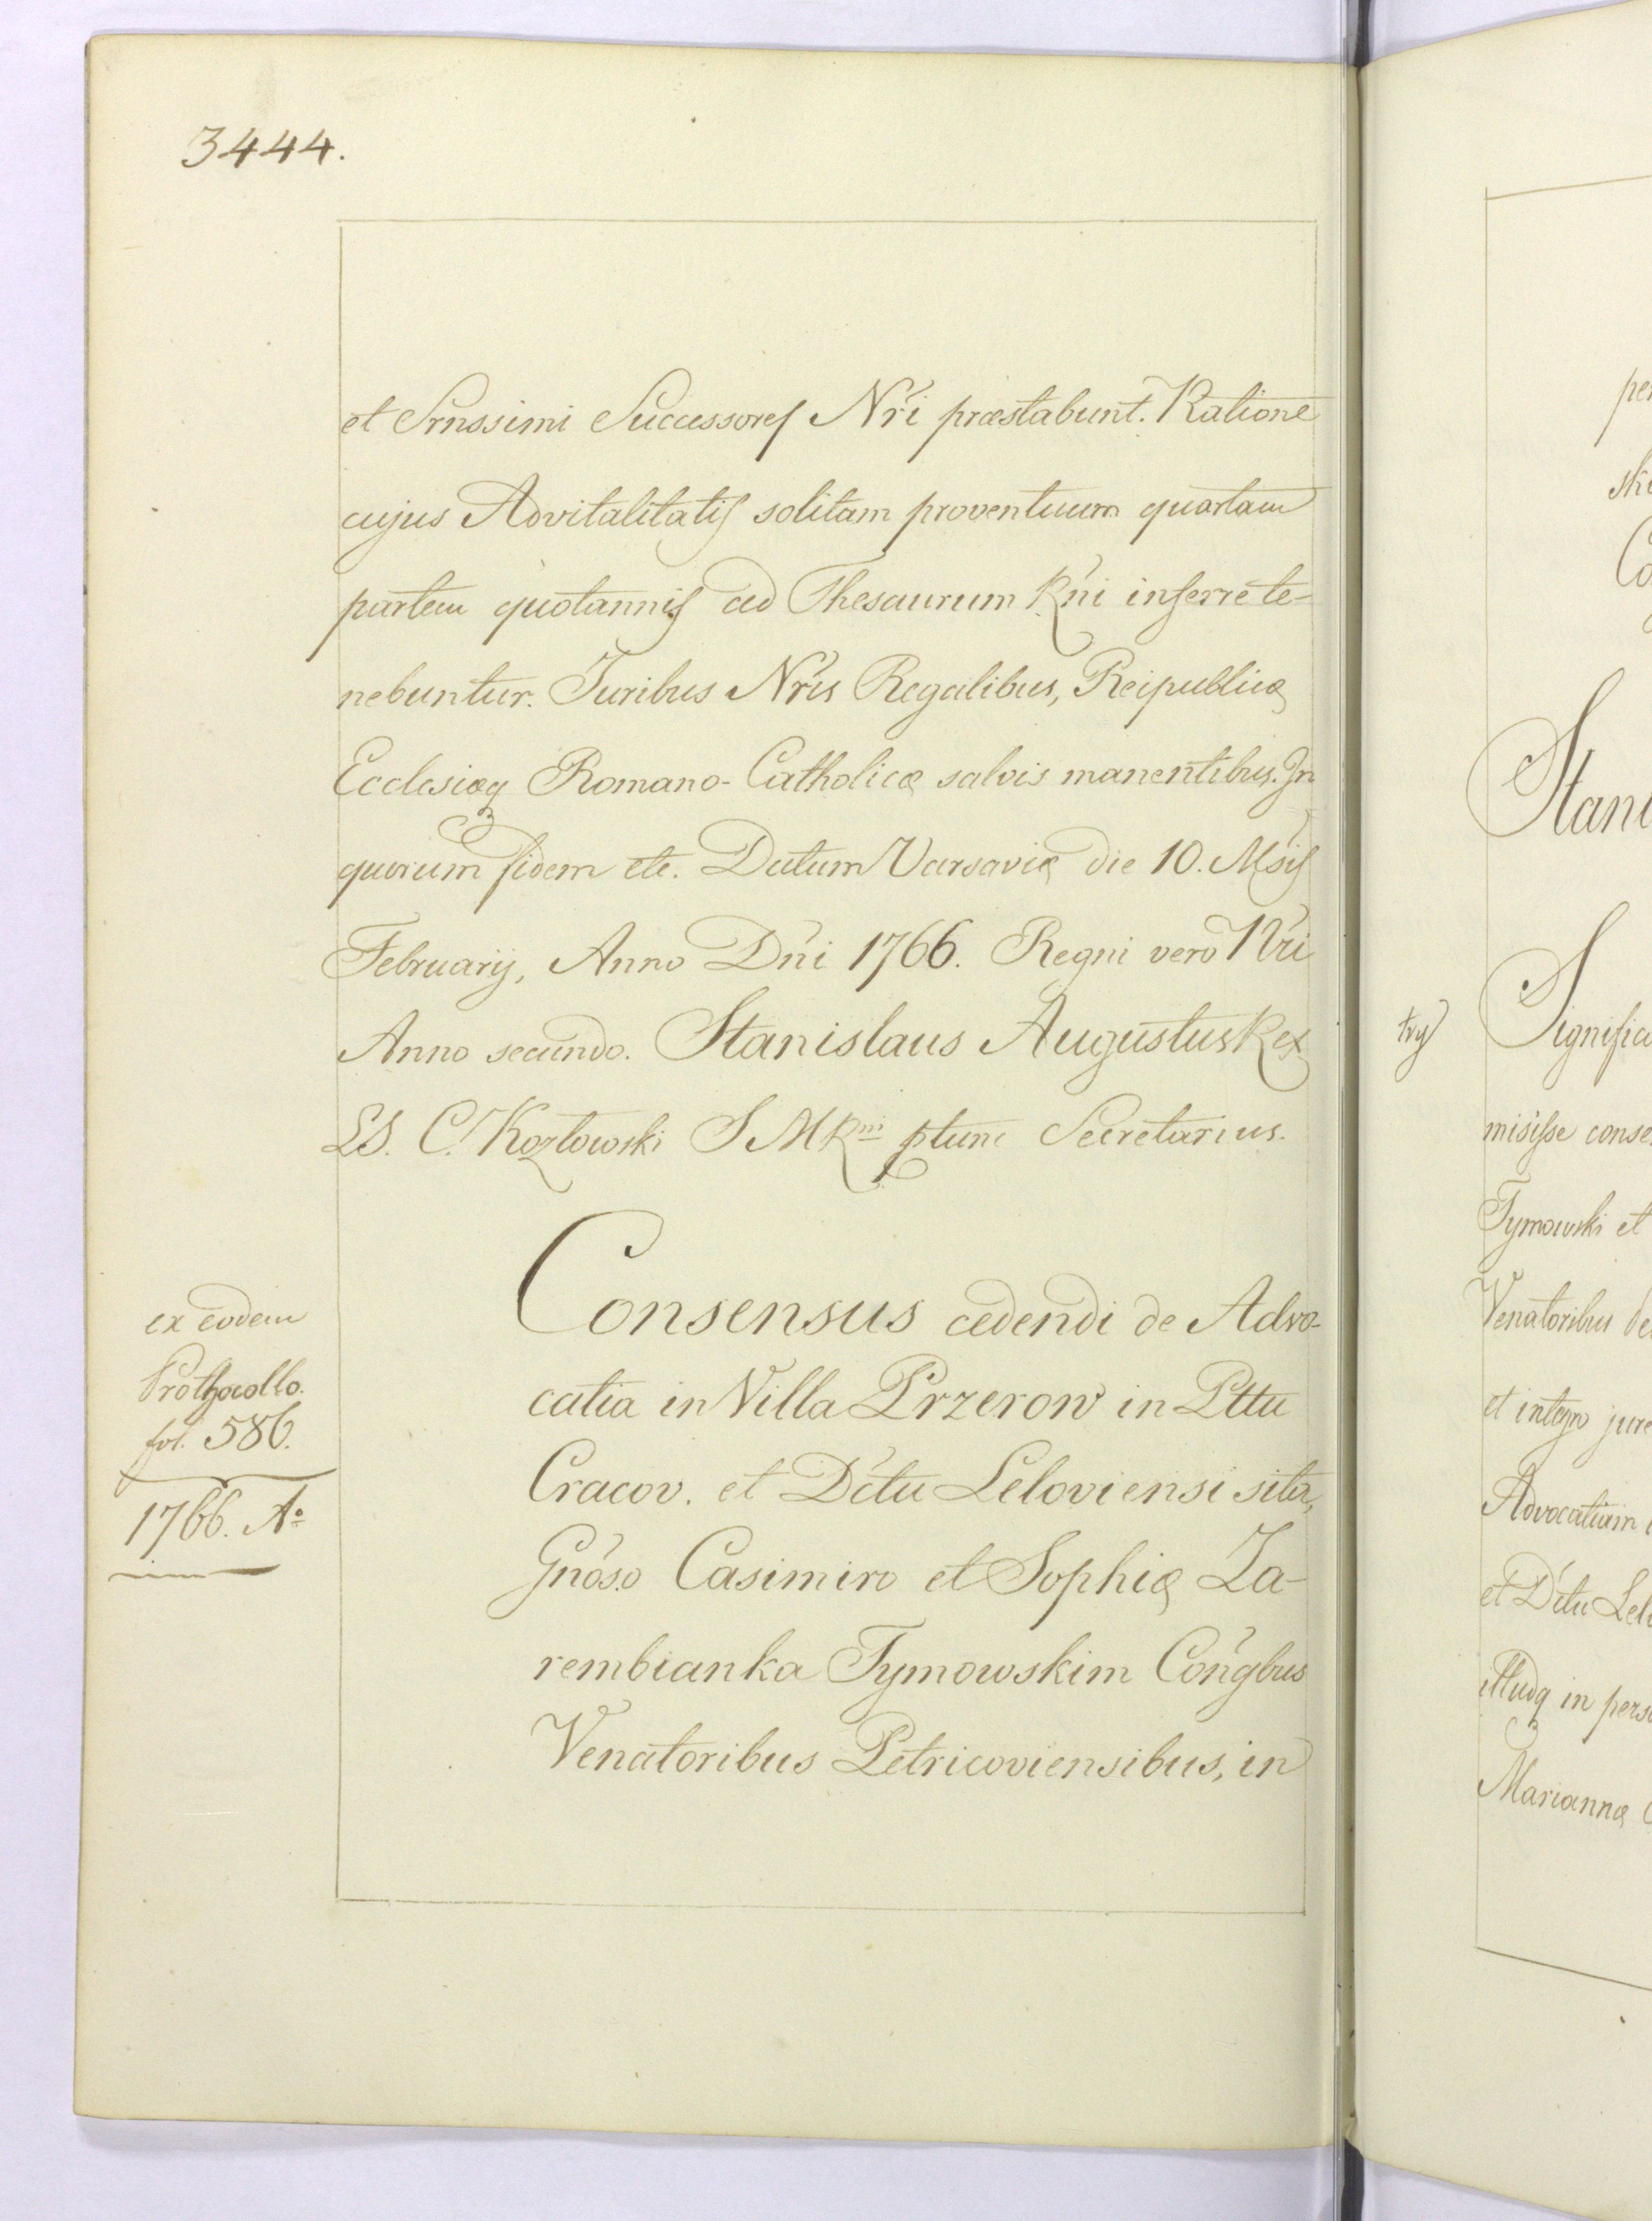 3444.
et Srnssimi Successores Nr̃i præstabunt. Ratione
cujus Advitalitatis solitam proventuum quartam
partem quotannis ad Thesaurum Rñi inferre te-
nebuntur. Juribus Nr̃is Regalibus, Reipublicæ
Ecclesiæq Romano-Catholicæ salvis manentibus. In
quorum fidem etc. Datum Varsaviæ die 10. Msis
February, Anno Dñi 1766. Regni vero Nr̃i
Anno secundo. Stanislaus Augustus Rex
LS. C. Kozłowski S M R ptunc Secretarius.
ex eodem
Prothocollo.
fol. 586.
1766. Aº
Consensus cedendi de Advo-
catia in Villa Przerow in Pttu
Cracov. et Dctu Leloviensi sita,
Gnoso Casimiro et Sophiæ Za-
rembianka Tymowskim Congbus
Venatoribus Petricoviensibus, in
per
ski
Co
Stani
Significa
misisse conse
Tymowski et
Venatoribus de
et integro jure
Advocatiam
et Dctu Lelo
illudq in perso
Mariannæ